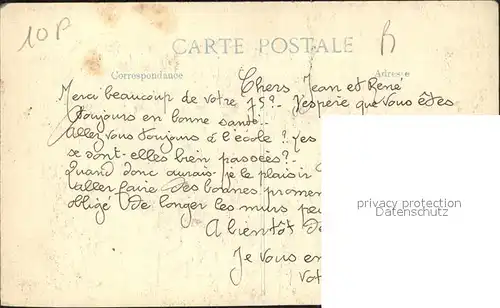 10 P
CARTE POSTALE
R
Correspondance
Adresse
Chers Jean et René
Merci beaucoup de votre - J'espère que vous êtes
toujours en bonne santé.
Allez vous toujours à l'école ? Les
se sont-elles bien passées ? -
Quand donc aurais-je le plaisir
d'aller faire des bonnes promen
obligé de longer les murs
A bientôt de
Je vous en
vot
privacy protection
Datenschutz